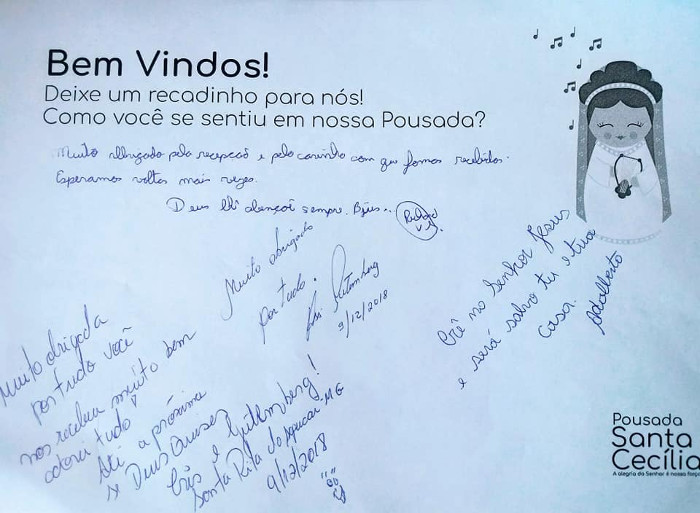 Bem Vindos!
Deixe um recadinho para nós!
Como você se sentiu em nossa Pousada?
Muito obrigado pela recepção e pelo carinho com que fomos recebidos.
Esperamos voltar mais vezes.
Deus lhi abençoi sempre. Bjus..
Muito obrigado
por tudo.
Gutemberg
9/12/2018
Crê no Senhor Jesus
e será salvo tu e tua
casa.
Adalberto
Muito obrigada
por tudo você
nos recebeu muito bem
adorei tudo
Até a próxima
se Deus quiser
Cris e Gutemberg!
Santa Rita do Sapucaí-MG
9/12/2018
Pousada
Santa
Cecília
A alegria do Senhor é nossa força